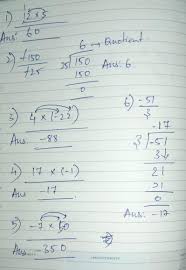 1) 12 × 5
Ans: 60
2) -150
-25
6 → Quotient
25 | 150
150
0
Ans: 6
3) 4 × (-22)
Ans. -88
4) 17 × (-1)
Ans -17
5) -7 × 50
Ans. -350
6) -51
3
-17
3 | -51
3
21
21
0
Ans: -17